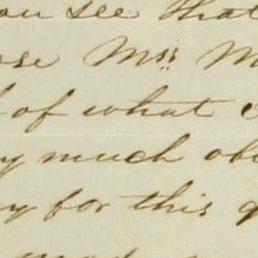 you see that
Mrs M
of what
y much ob
y for this